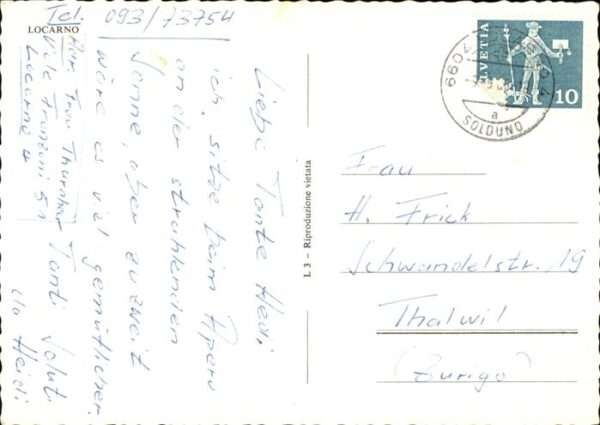 Tel. 093/73754
LOCARNO
per. Frau Thurnher
Vile Franzoni 51
Locarno 4
Liebe Tante Hedi
ich sitze beim Apero
an der strahlenden
Sonne, aber zu zweit
wäre es viel gemütlicher.
Tanti Saluti
da Heidi
L 3 – Riproduzione vietata
HELVETIA
10
6604
6604
a
SOLDUNO
Frau
H. Frick
Schwandelstr. 19
Thalwil
(Zurigo)